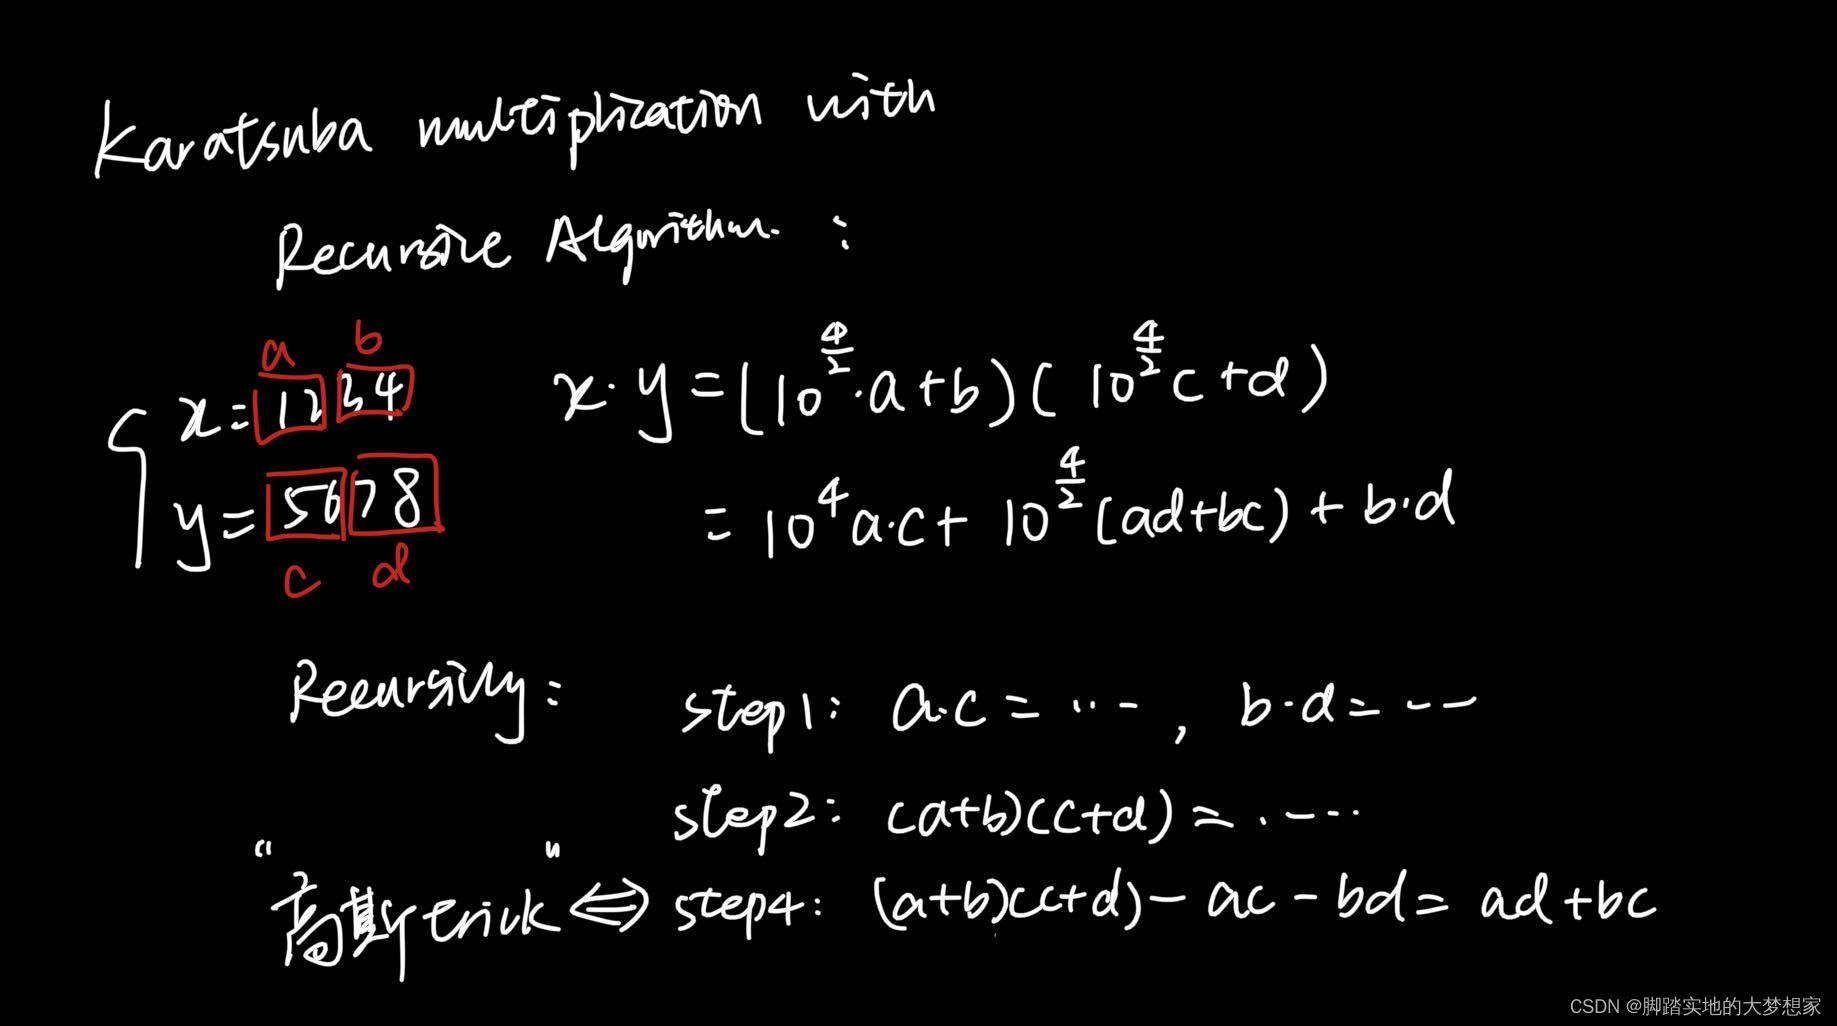 Karatsuba multiplication with
Recursive Algorithm. :
a b
x = 12 34
y = 56 78
c d
x · y = (10^{4/2} · a + b) (10^{4/2} c + d)
= 10^4 a · c + 10^{4/2} (ad + bc) + b · d
Recursivly :
step1: a · c = ··· , b · d = ---
step2: (a+b)(c+d) = ·----
"高斯trick" ⟺ step4: (a+b)(c+d) - ac - bd = ad + bc
CSDN @脚踏实地的大梦想家